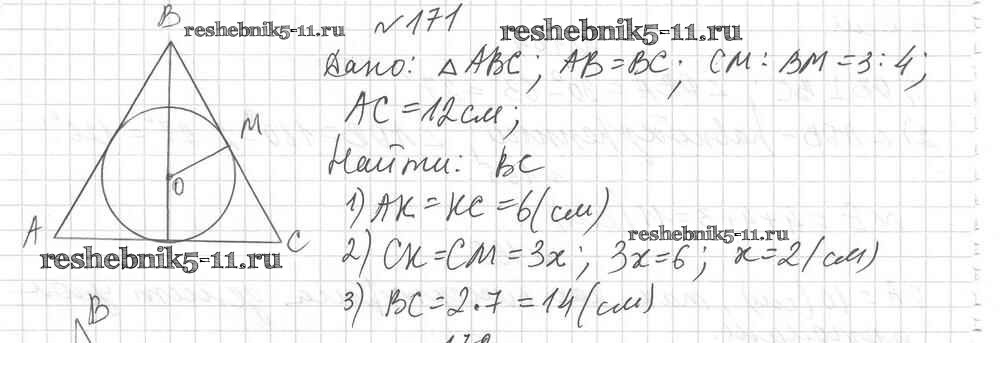 B
reshebnik5-11.ru
№171
reshebnik5-11.ru
Дано: △ABC; AB=BC; CM:BM=3:4;
AC=12см;
M
Найти: BC
O
1) AK=KC=6(см)
A
C
reshebnik5-11.ru
reshebnik5-11.ru
2) CK=CM=3x; 3x=6; x=2(см)
3) BC=2·7=14(см)
B